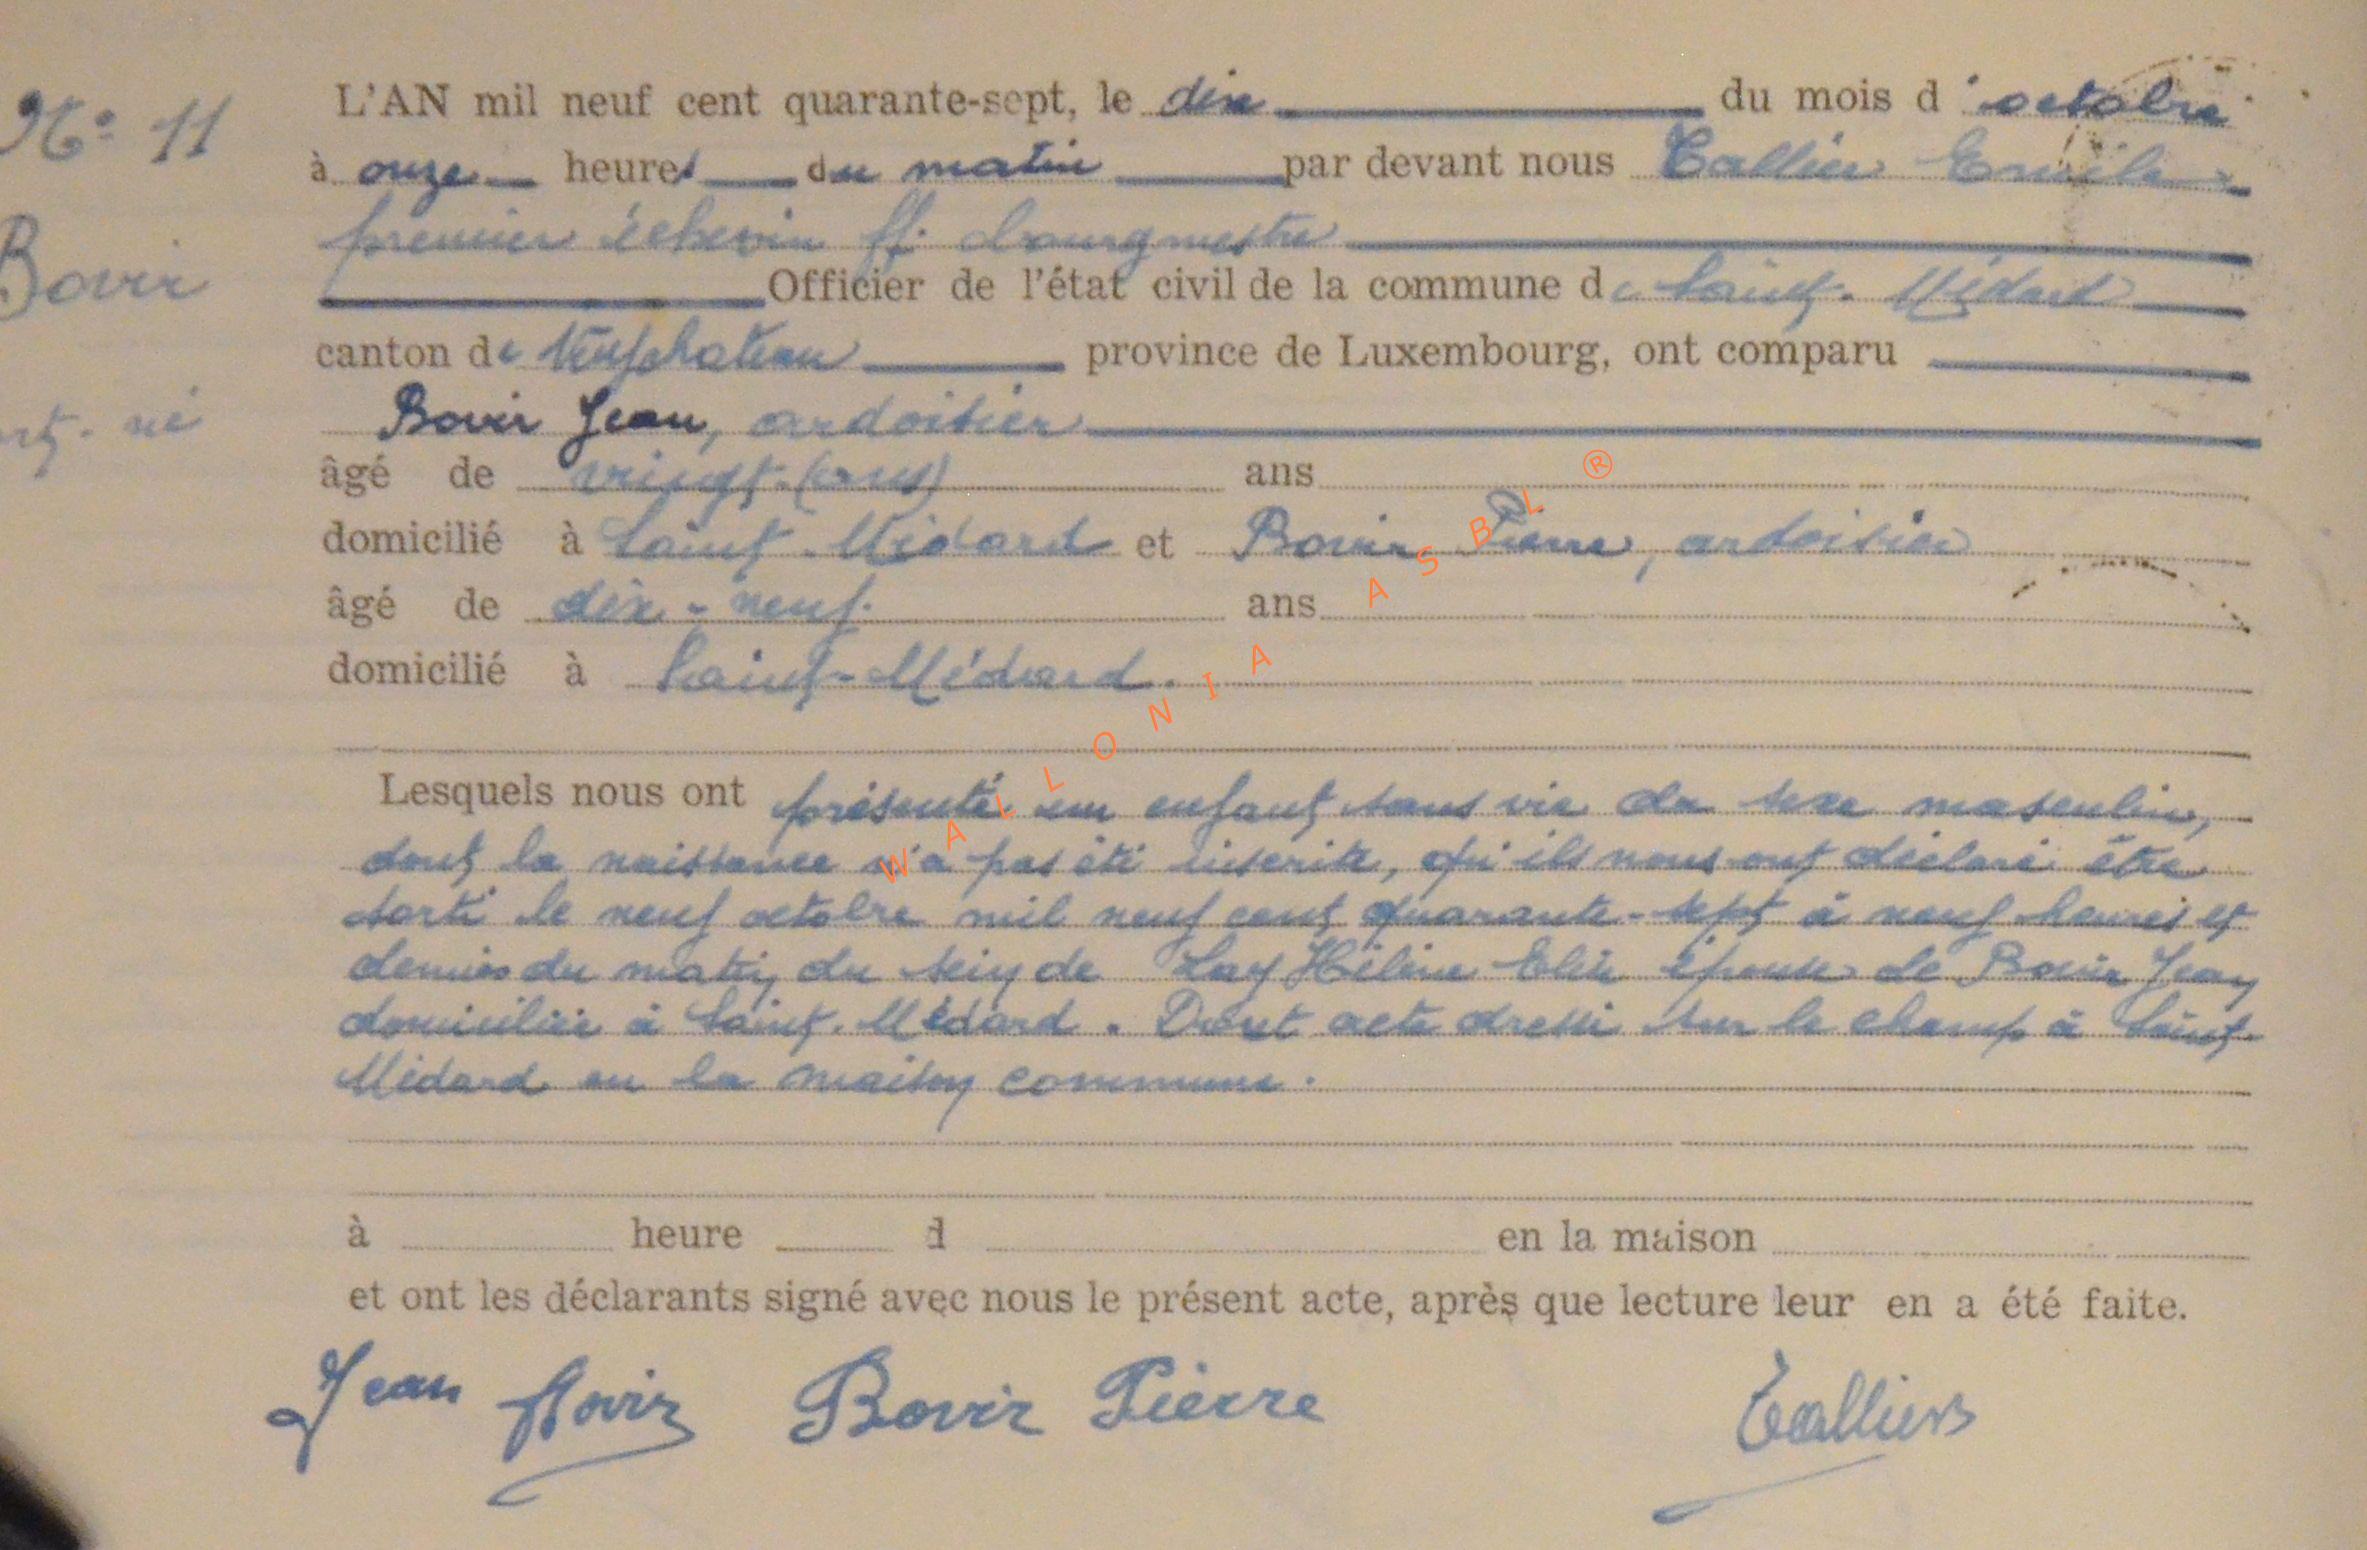 N° 11
L'AN mil neuf cent quarante-sept, le dix du mois d'octobre
à onze heures du matin par devant nous Tallier Emile
premier échevin ff. bourgmestre
Bovir
Officier de l'état civil de la commune de Saint-Médard
canton de Neufchateau province de Luxembourg, ont comparu
Bovir Jean, ardoisier
né
âgé de vingt (ans) ans
domicilié à Saint-Médard et Bovir Pierre, ardoisier
âgé de dix-neuf ans
domicilié à Saint-Médard.
Lesquels nous ont présenté un enfant sans vie du sexe masculin,
dont la naissance n'a pas été inscrite, qu'ils nous ont déclaré être
sorti le neuf octobre mil neuf cent quarante-sept à neuf heures et
demies du matin du sein de Hélène épouse de Bovir Jean
domiciliée à Saint-Médard. Dont acte dressé sur le champ à Saint-
Médard en la maison commune.
à heure d en la maison
et ont les déclarants signé avec nous le présent acte, après que lecture leur en a été faite.
Jean Bovir Bovir Pierre
WALLONIA ASBL ®